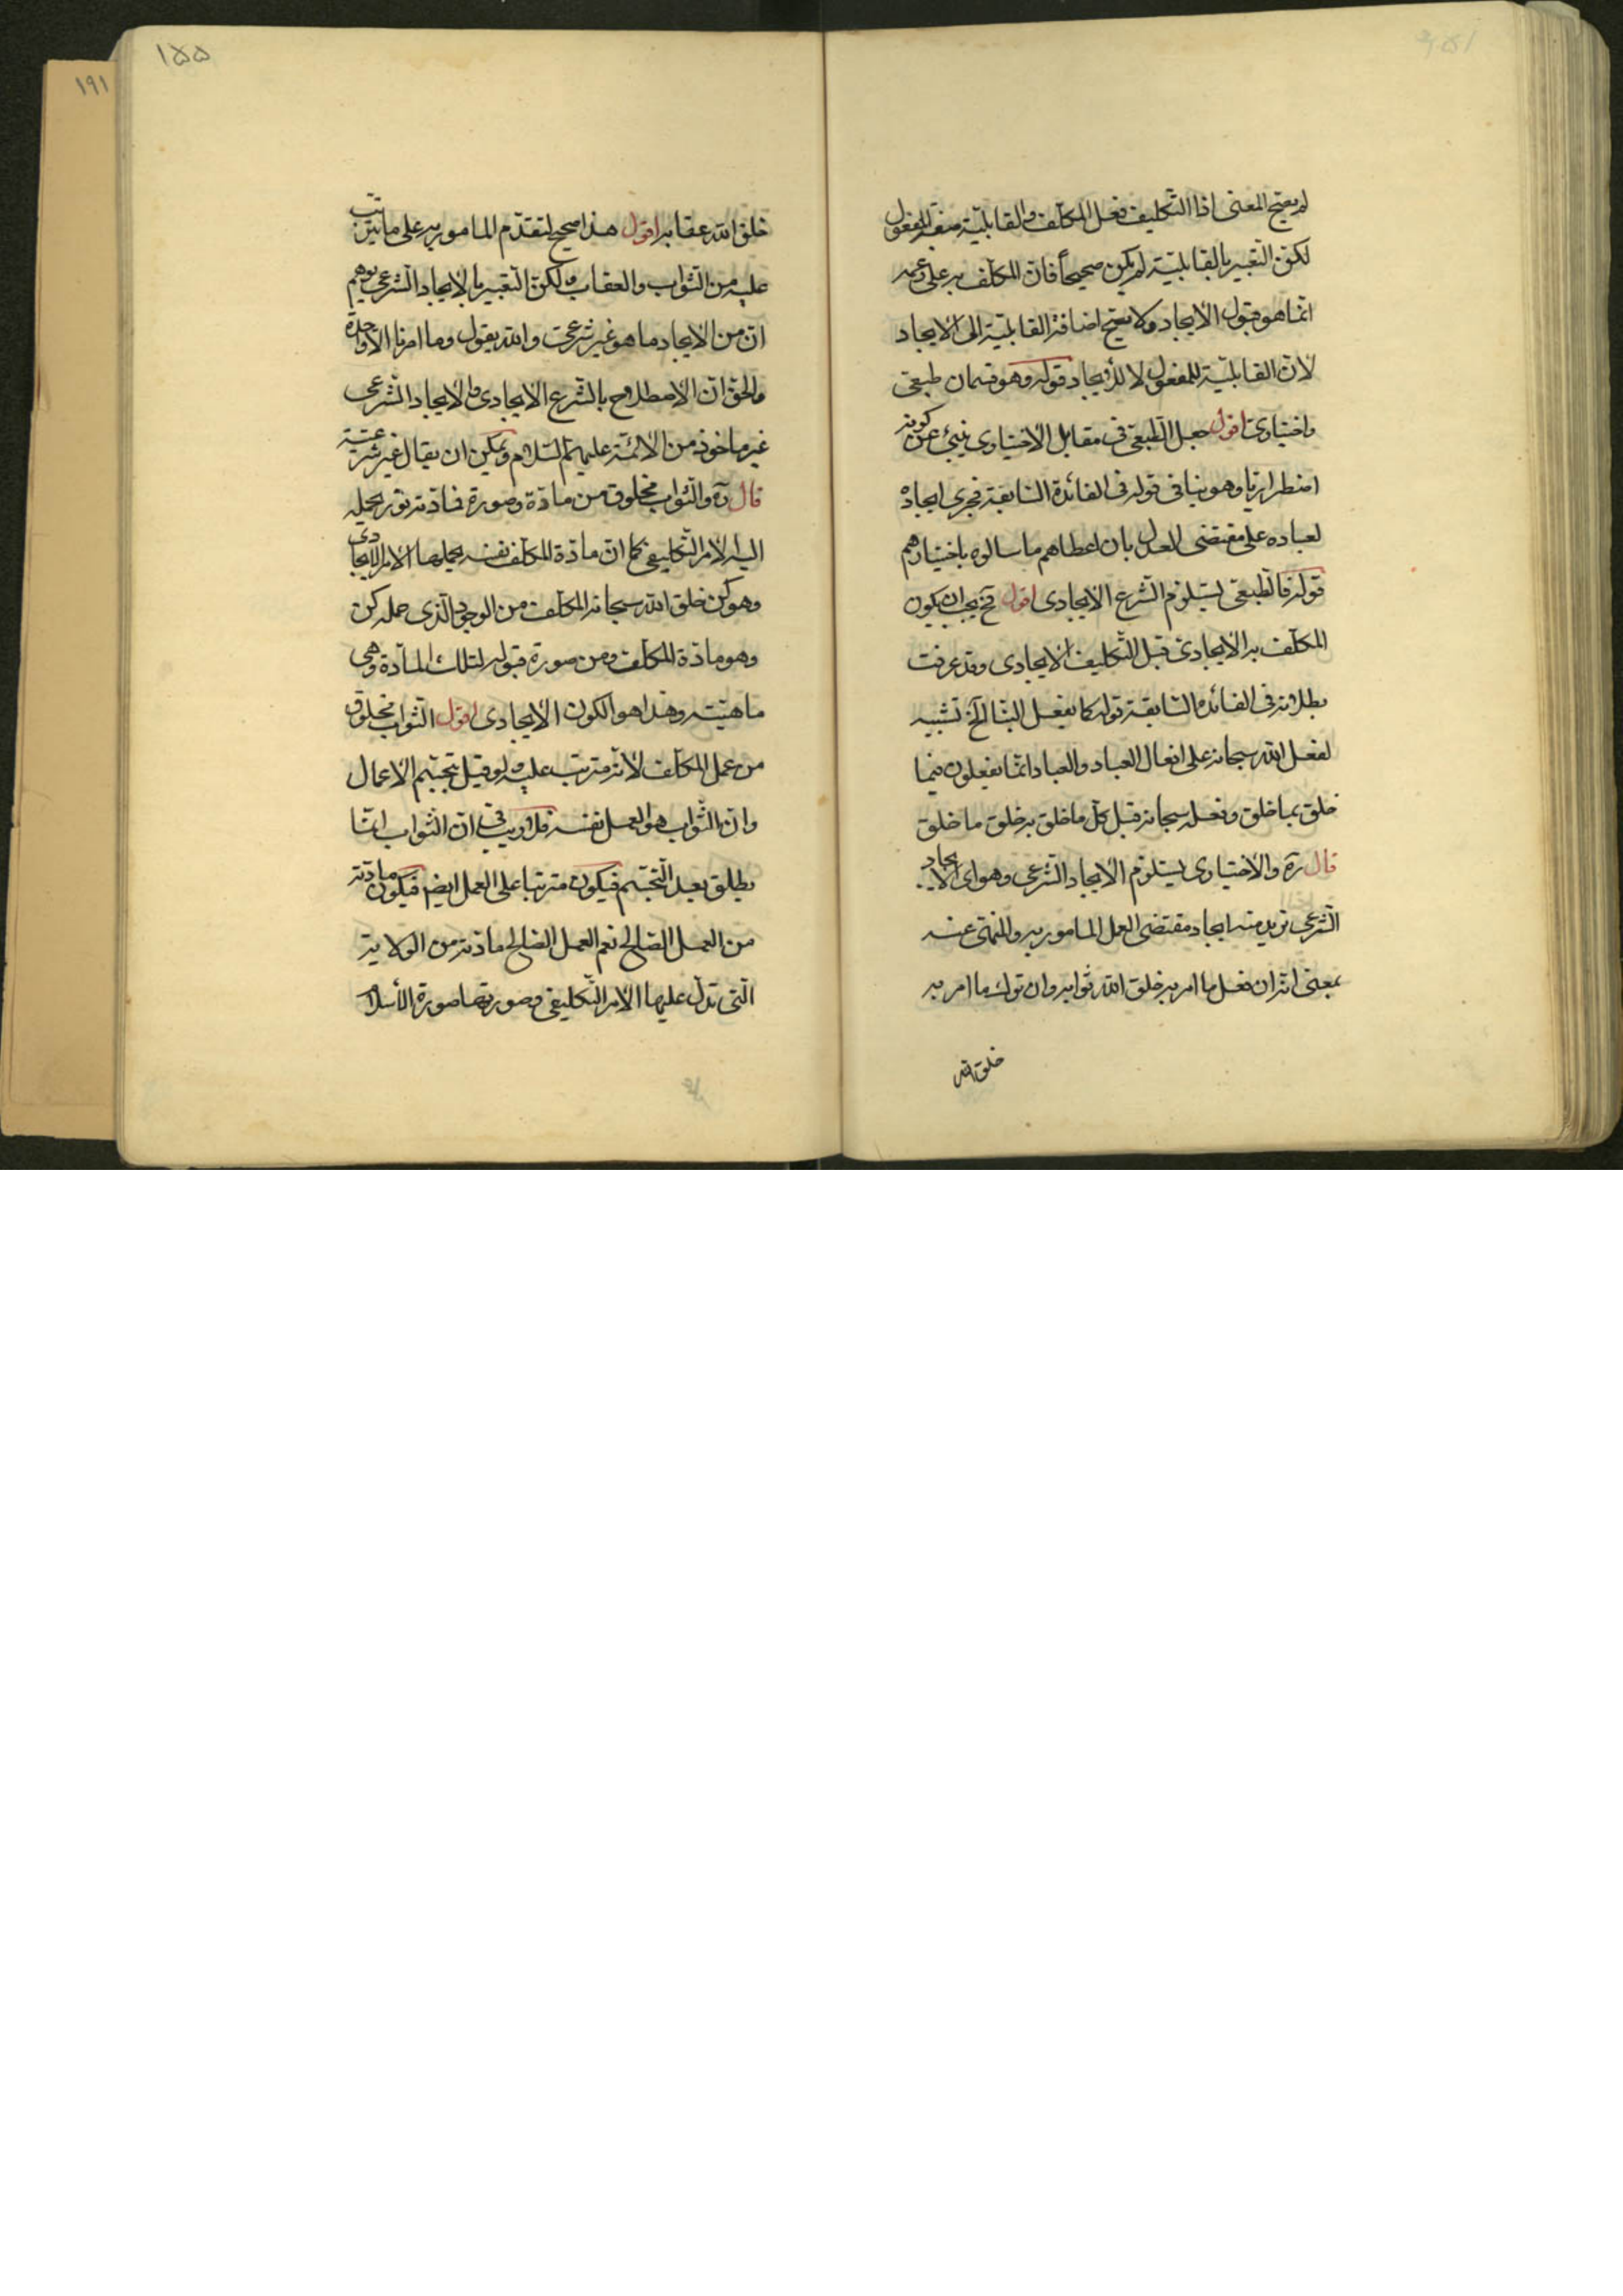 لم يصح المعنى اذا التكليف فعل المكلف والقابلية صفة المفعول
لكن التعبير بالقابلية لم يكن صحيحاً فان المكلف به على زعمه
انما هو قبول الايجاد ولا يصح اضافة القابلية الى الايجاد
لان القابلية للمفعول لا للايجاد قوله وهو قسمان طبيعى
واختيارى اقول جعل الطبيعى فى مقابل الاختيارى ينبئ عن كونه
اضطراريا وهو ينافى قوله فى الفائدة السابقة فجرى ايجاده
لعباده على مقتضى العدل بان اعطاهم ما سالوه باختيارهم
قوله فالطبيعى يستلزم الشرع الايجادى اقول فح يجب ان يكون
المكلف به الايجادى قبل التكليف الايجادى وقد عرفت
بطلانه فى الفائدة السابقة قوله كما يفعل البنا الخ تشبيه
لفعل الله سبحانه على افعال العباد والعباد انما يفعلون فيما
خلق بما خلق وفعله سبحانه قبل كل ما خلق به خلق ما خلق
قال ره والاختيارى يستلزم الايجاد الشرعى وهو اى الايجاد
الشرعى نريد منه ايجاد مقتضى العمل المامور به والمنهى عنه
بمعنى انه ان فعل ما امر به خلق الله ثوابه وان ترك ما امر به
خلق الله
١٥٥
١٩١
خلق الله عقابه اقول هذا صحيح لتقدم المامور به على ما يترتب
عليه من الثواب والعقاب ولكن التعبير بالايجاد الشرعى يوهم
ان من الايجاد ما هو غير شرعى والله يقول وما امرنا الا واحدة
والحق ان الاصطلاح بالشرع الايجادى والايجاد الشرعى
غير ماخوذ من الائمة عليهم السلام ويمكن ان يقال غير شرعية
قال ره والثواب مخلوق من مادة وصورة فمادته نور يحمله
اليه الامر التكليفى كما ان مادة المكلف نفسه يحملها الامر الايجادى
وهو كن خلق الله سبحانه المكلف من الوجود الذى حمله كن
وهو مادة المكلف ومن صورة قبوله لتلك المادة وهى
ماهيته وهذا هو الكون الايجادى اقول الثواب مخلوق
من عمل المكلف لانه مترتب عليه ولو قيل بتجسم الاعمال
وان الثواب هو العمل نفسه فلا ريب فى ان الثواب انما
يطلق بعد التجسم فيكون مترتبا على العمل ايضا فيكون مادته
من العمل الصالح نعم العمل الصالح مادته من الولاية
التى تدل عليها الامر التكليفى وصورتها صورة الاسلام